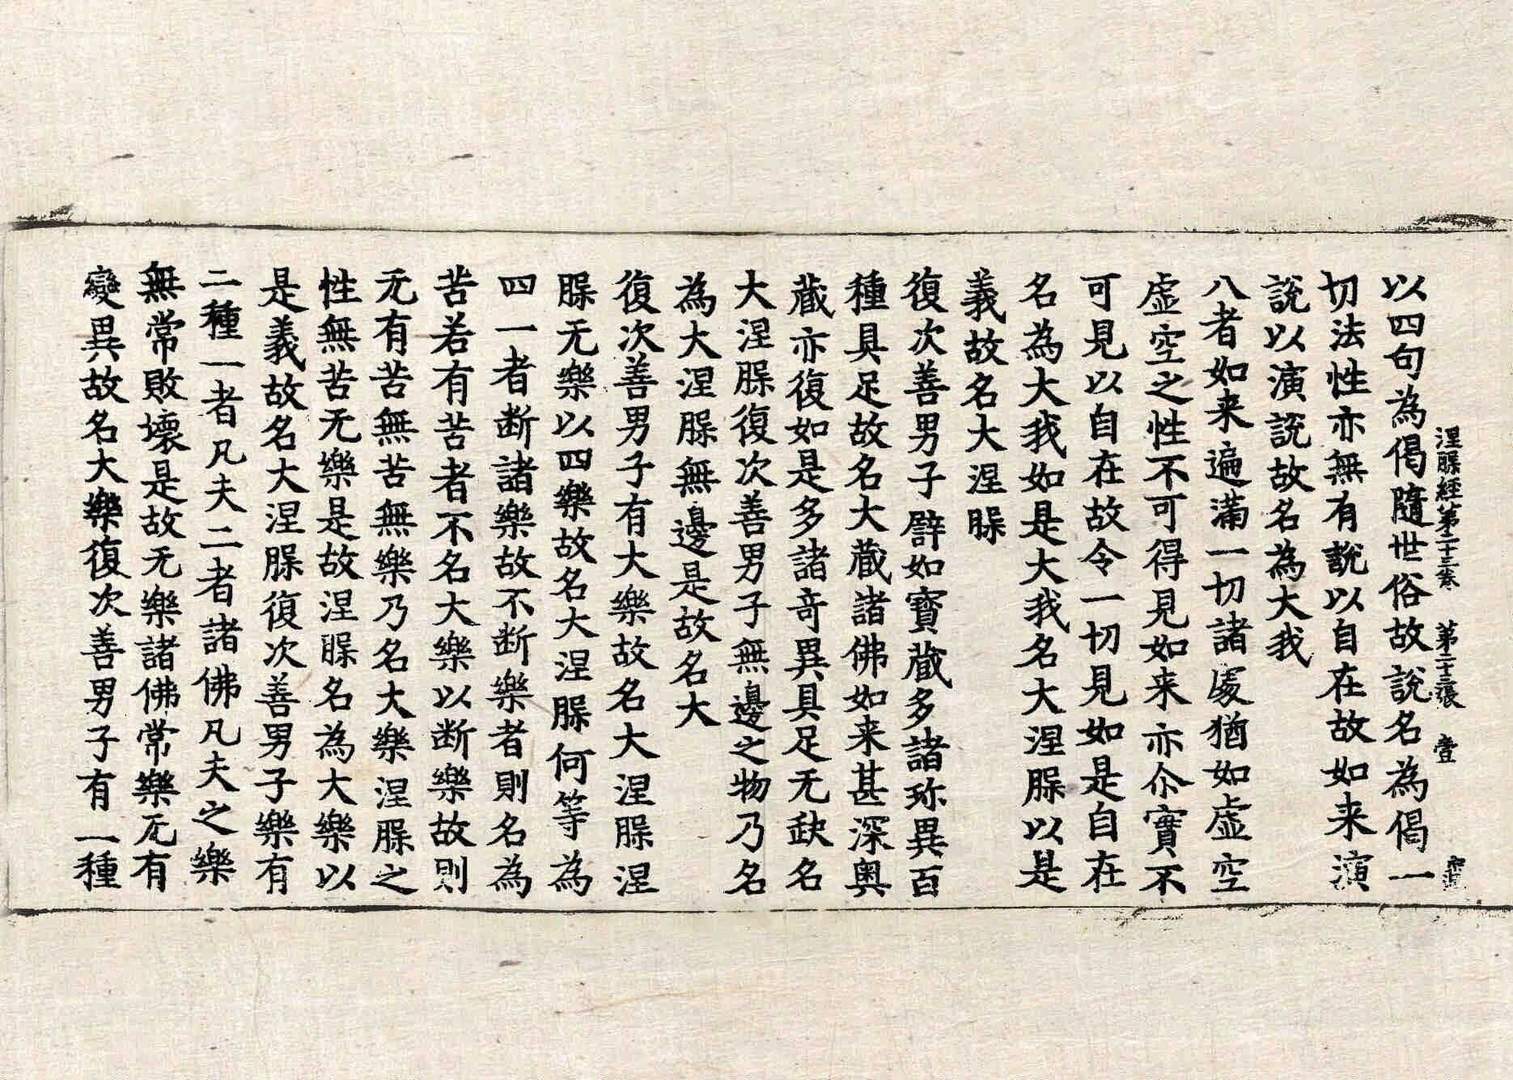 涅槃經第二十三卷 第二十三張 壹
以四句為偈隨世俗故說名為偈一
切法性亦無有說以自在故如来演
說以演說故名為大我
八者如来遍滿一切諸處猶如虛空
虛空之性不可得見如来亦尒實不
可見以自在故令一切見如是自在
名為大我如是大我名大涅槃以是
義故名大涅槃
復次善男子辟如寶藏多諸珎異百
種具足故名大藏諸佛如来甚深奥
藏亦復如是多諸奇異具足无缺名
大涅槃復次善男子無邊之物乃名
為大涅槃無邊是故名大
復次善男子有大樂故名大涅槃涅
槃无樂以四樂故名大涅槃何等為
四一者断諸樂故不断樂者則名為
苦若有苦者不名大樂以断樂故則
无有苦無苦無樂乃名大樂涅槃之
性無苦无樂是故涅槃名為大樂以
是義故名大涅槃復次善男子樂有
二種一者凡夫二者諸佛凡夫之樂
無常敗壞是故无樂諸佛常樂无有
變異故名大樂復次善男子有一種